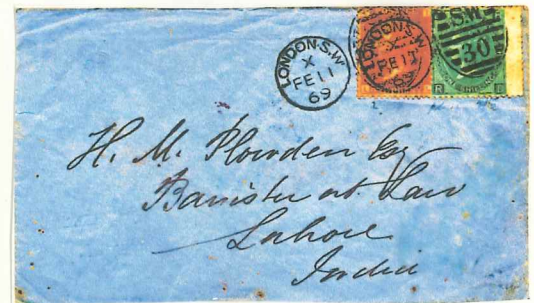 LONDON.S.W
X
FE 11
69
LONDON.S.W
X
FE 11
69
S.W.
30
R L
H. M. Plowden Esq
Barrister at Law
Lahore
India